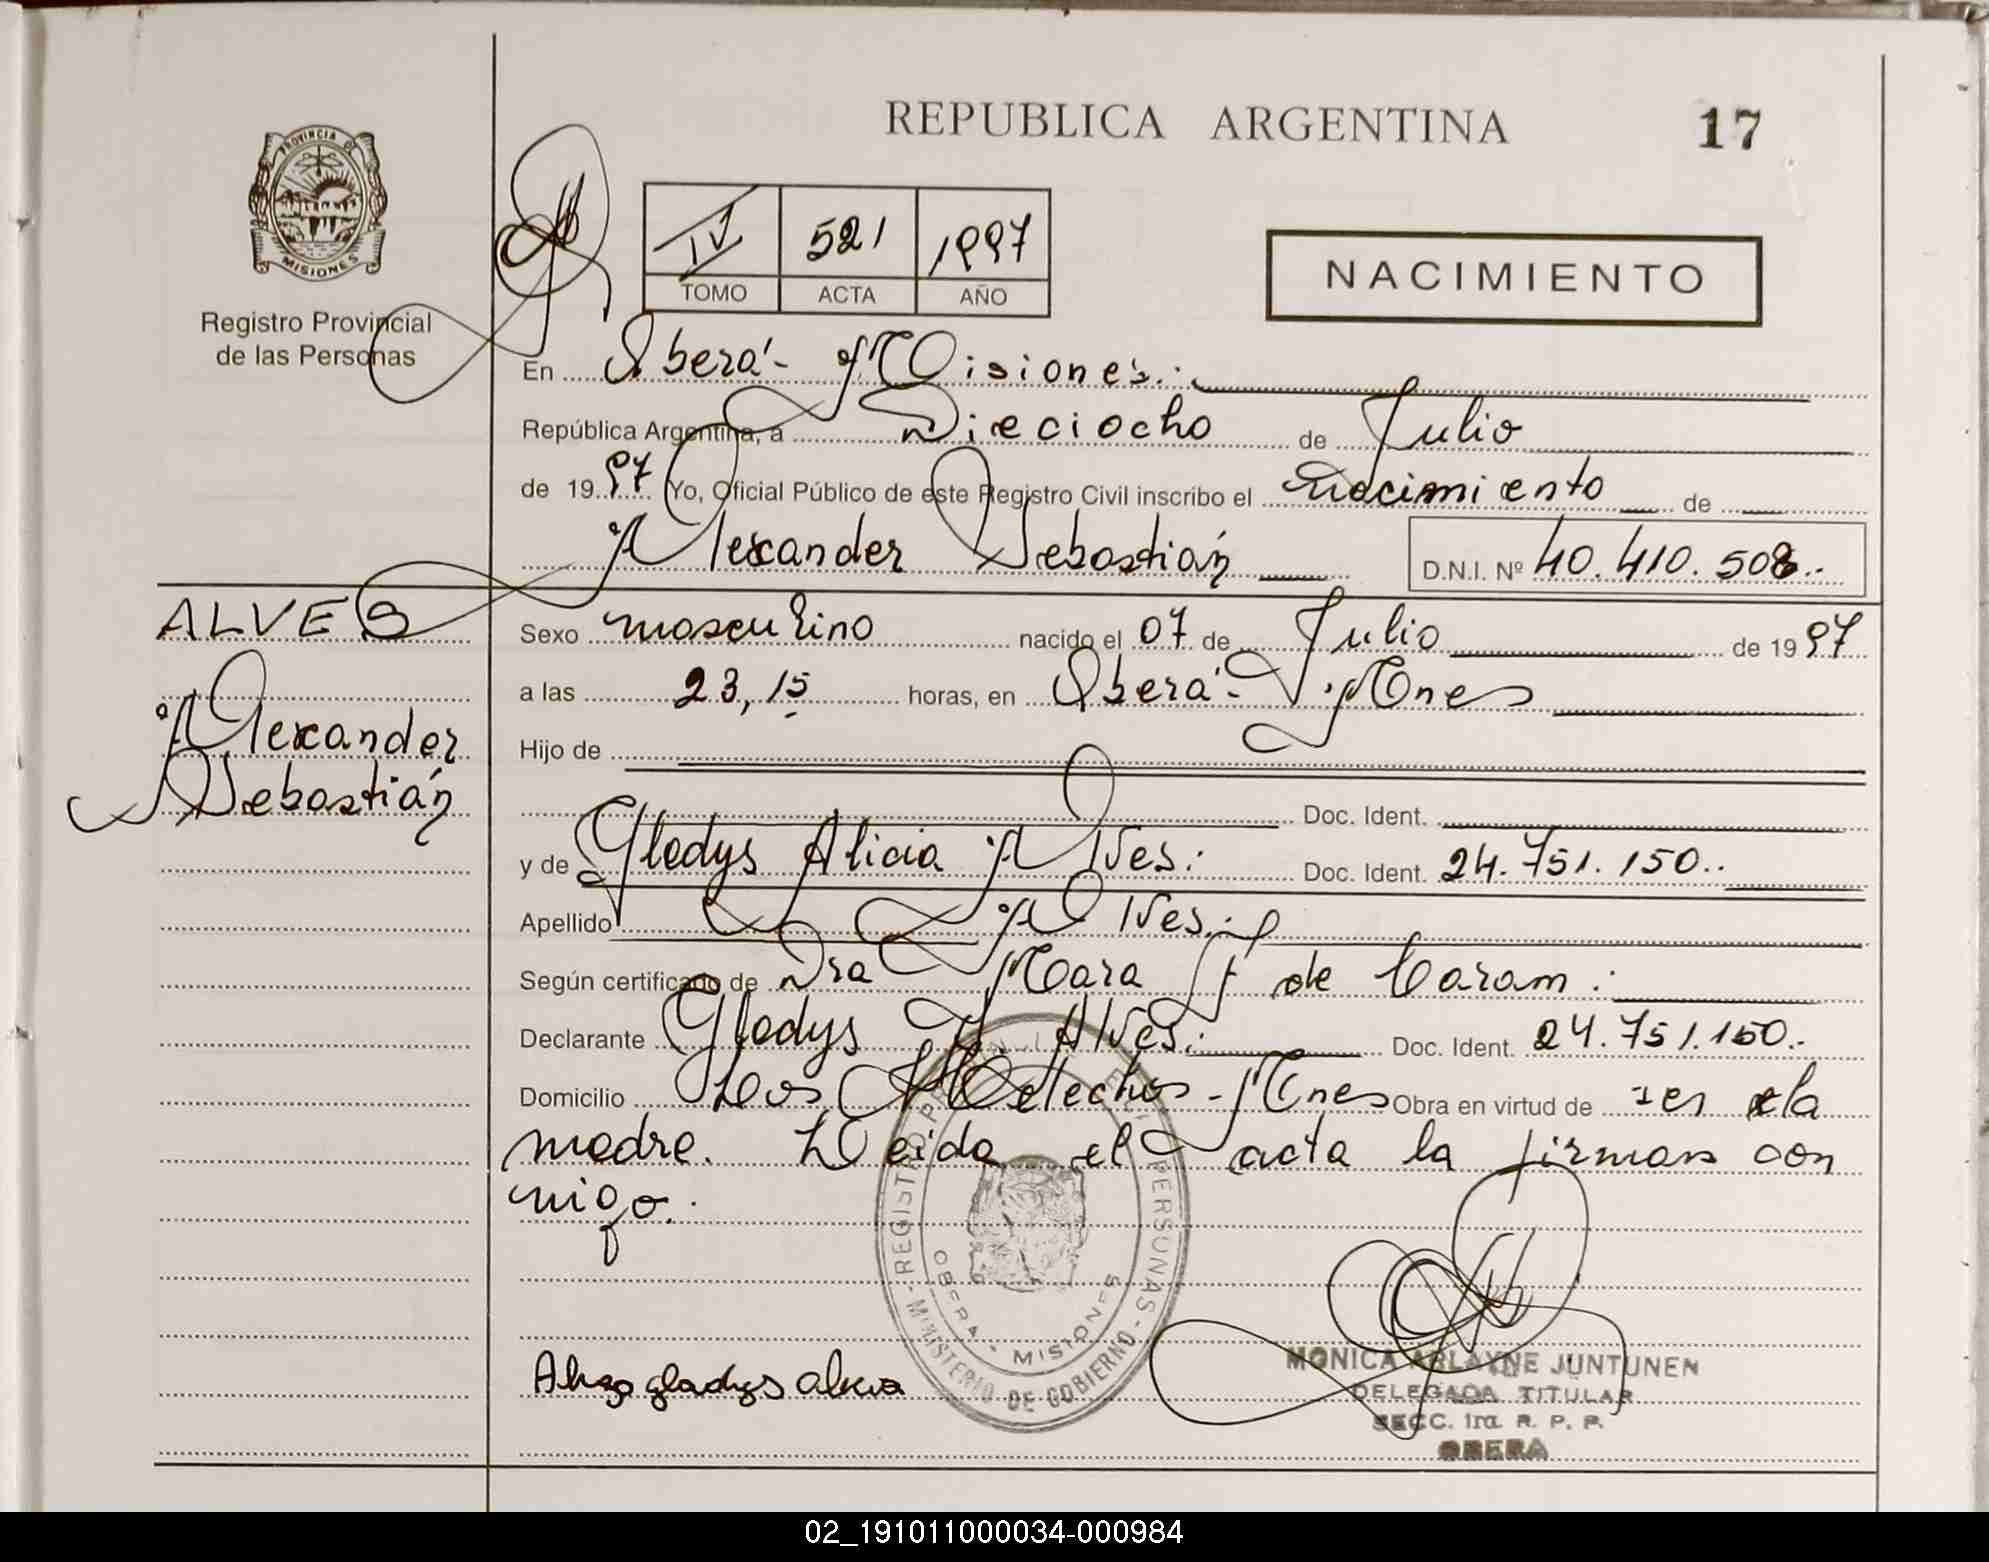 REPUBLICA ARGENTINA
17
PROVINCIA DE
MISIONES
Registro Provincial
de las Personas
IV 521 1997
TOMO ACTA AÑO
NACIMIENTO
En Oberá - Misiones.
República Argentina, a Dieciocho de Julio
de 1997 Yo, Oficial Público de este Registro Civil inscribo el Nacimiento de
Alexander Sebastián
D.N.I. Nº 40.410.508..
ALVES
Alexander
Sebastián
Sexo masculino nacido el 07 de Julio de 1997
a las 23,15 horas, en Oberá - Mnes
Hijo de
Doc. Ident.
y de Gladys Alicia Alves. Doc. Ident. 24.751.150..
Apellido Alves.
Según certificado de Dra Mara de Caram.
Declarante Gladys A. Alves. Doc. Ident. 24.751.150..
Domicilio Los Helechos - Mnes Obra en virtud de ser la
madre. Leida el acta la firman con
migo.
REGISTRO PROVINCIAL DE LAS PERSONAS - MINISTERIO DE GOBIERNO -
OBERA - MISIONES
gladys alicia
MONICA ARLAYNE JUNTUNEN
DELEGADA TITULAR
SECC. 1ra. R. P. P.
OBERA
02_191011000034-000984